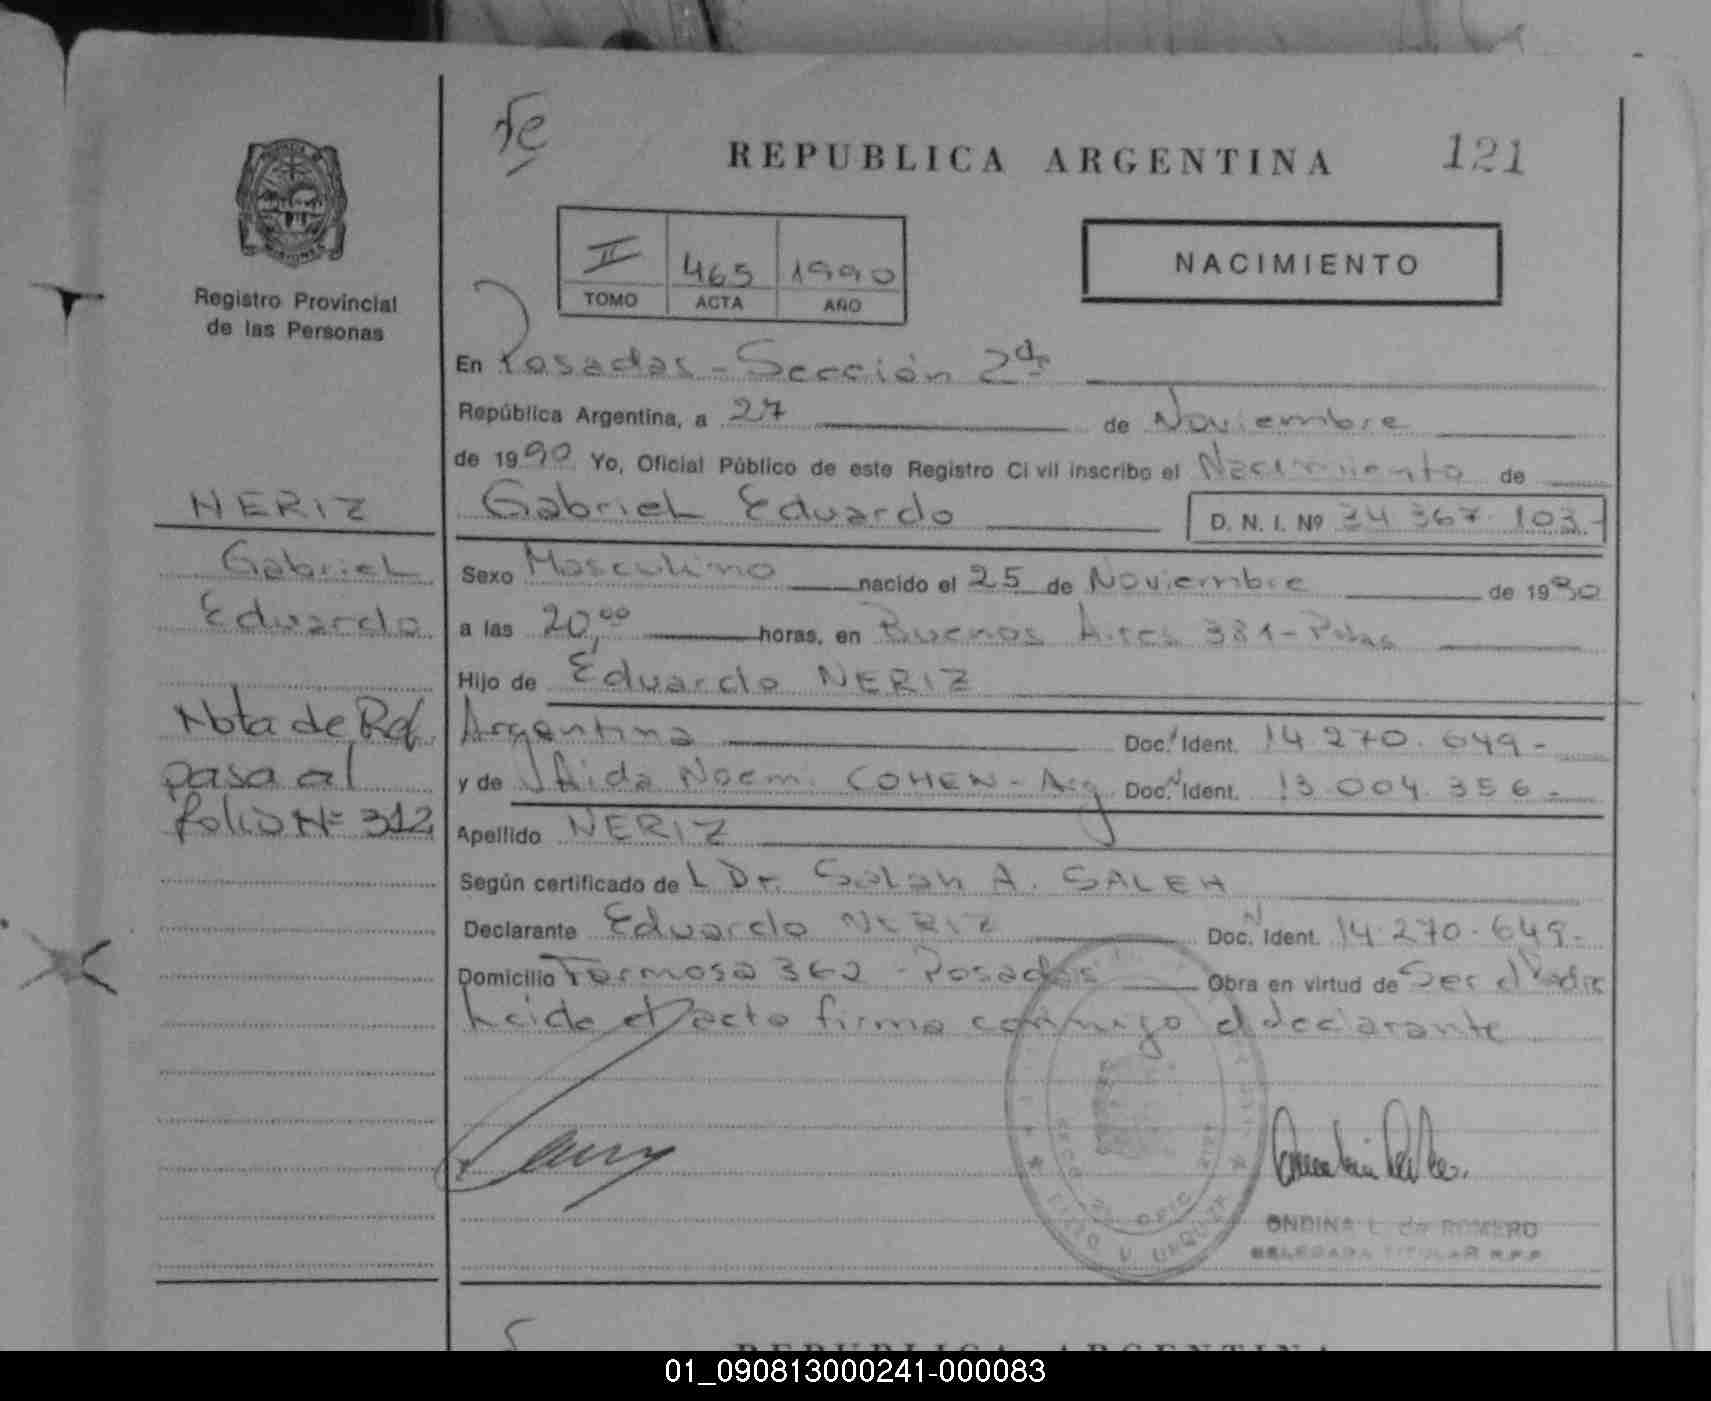 fe
REPUBLICA ARGENTINA 121
II 465 1990
TOMO ACTA AÑO
NACIMIENTO
Registro Provincial
de las Personas
En Posadas - Sección 2da
República Argentina, a 27 de Noviembre
de 1990 Yo, Oficial Público de este Registro Civil inscribo el Nacimiento de
Gabriel Eduardo D. N. I. Nº 34 367. 103-
Sexo Masculino nacido el 25 de Noviembre de 1990
a las 20,00 horas, en Buenos Aires 381 - Pdas
Hijo de Eduardo NERIZ
Argentina Doc. Ident. 14.270.649-
y de Aida Noemi COHEN - Arg Doc. N Ident. 13.004.356-
Apellido NERIZ
Según certificado de L Dr. Salah A. SALEH
Declarante Eduardo NERIZ Doc. N Ident. 14.270.649-
Domicilio Formosa 362 - Posadas Obra en virtud de Ser el Padre
Leida el acto firma conmigo el declarante
NERIZ
Gabriel
Eduardo
Nota de Ref.
pasa al
folio Nº 312
ONDINA L. de ROMERO
DELEGADA TITULAR R.P.P.
REPUBLICA ARGENTINA
01_090813000241-000083